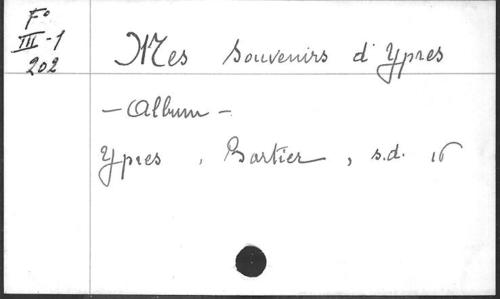 F°
III-1
202
Mes Souvenirs d'Ypres
- Album -
Ypres, Bartier, s.d. 16